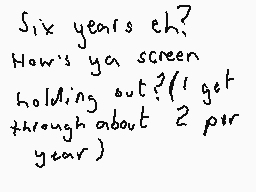 Six years eh?
How's ya screen
holding out? (I get
through about 2 per
year)